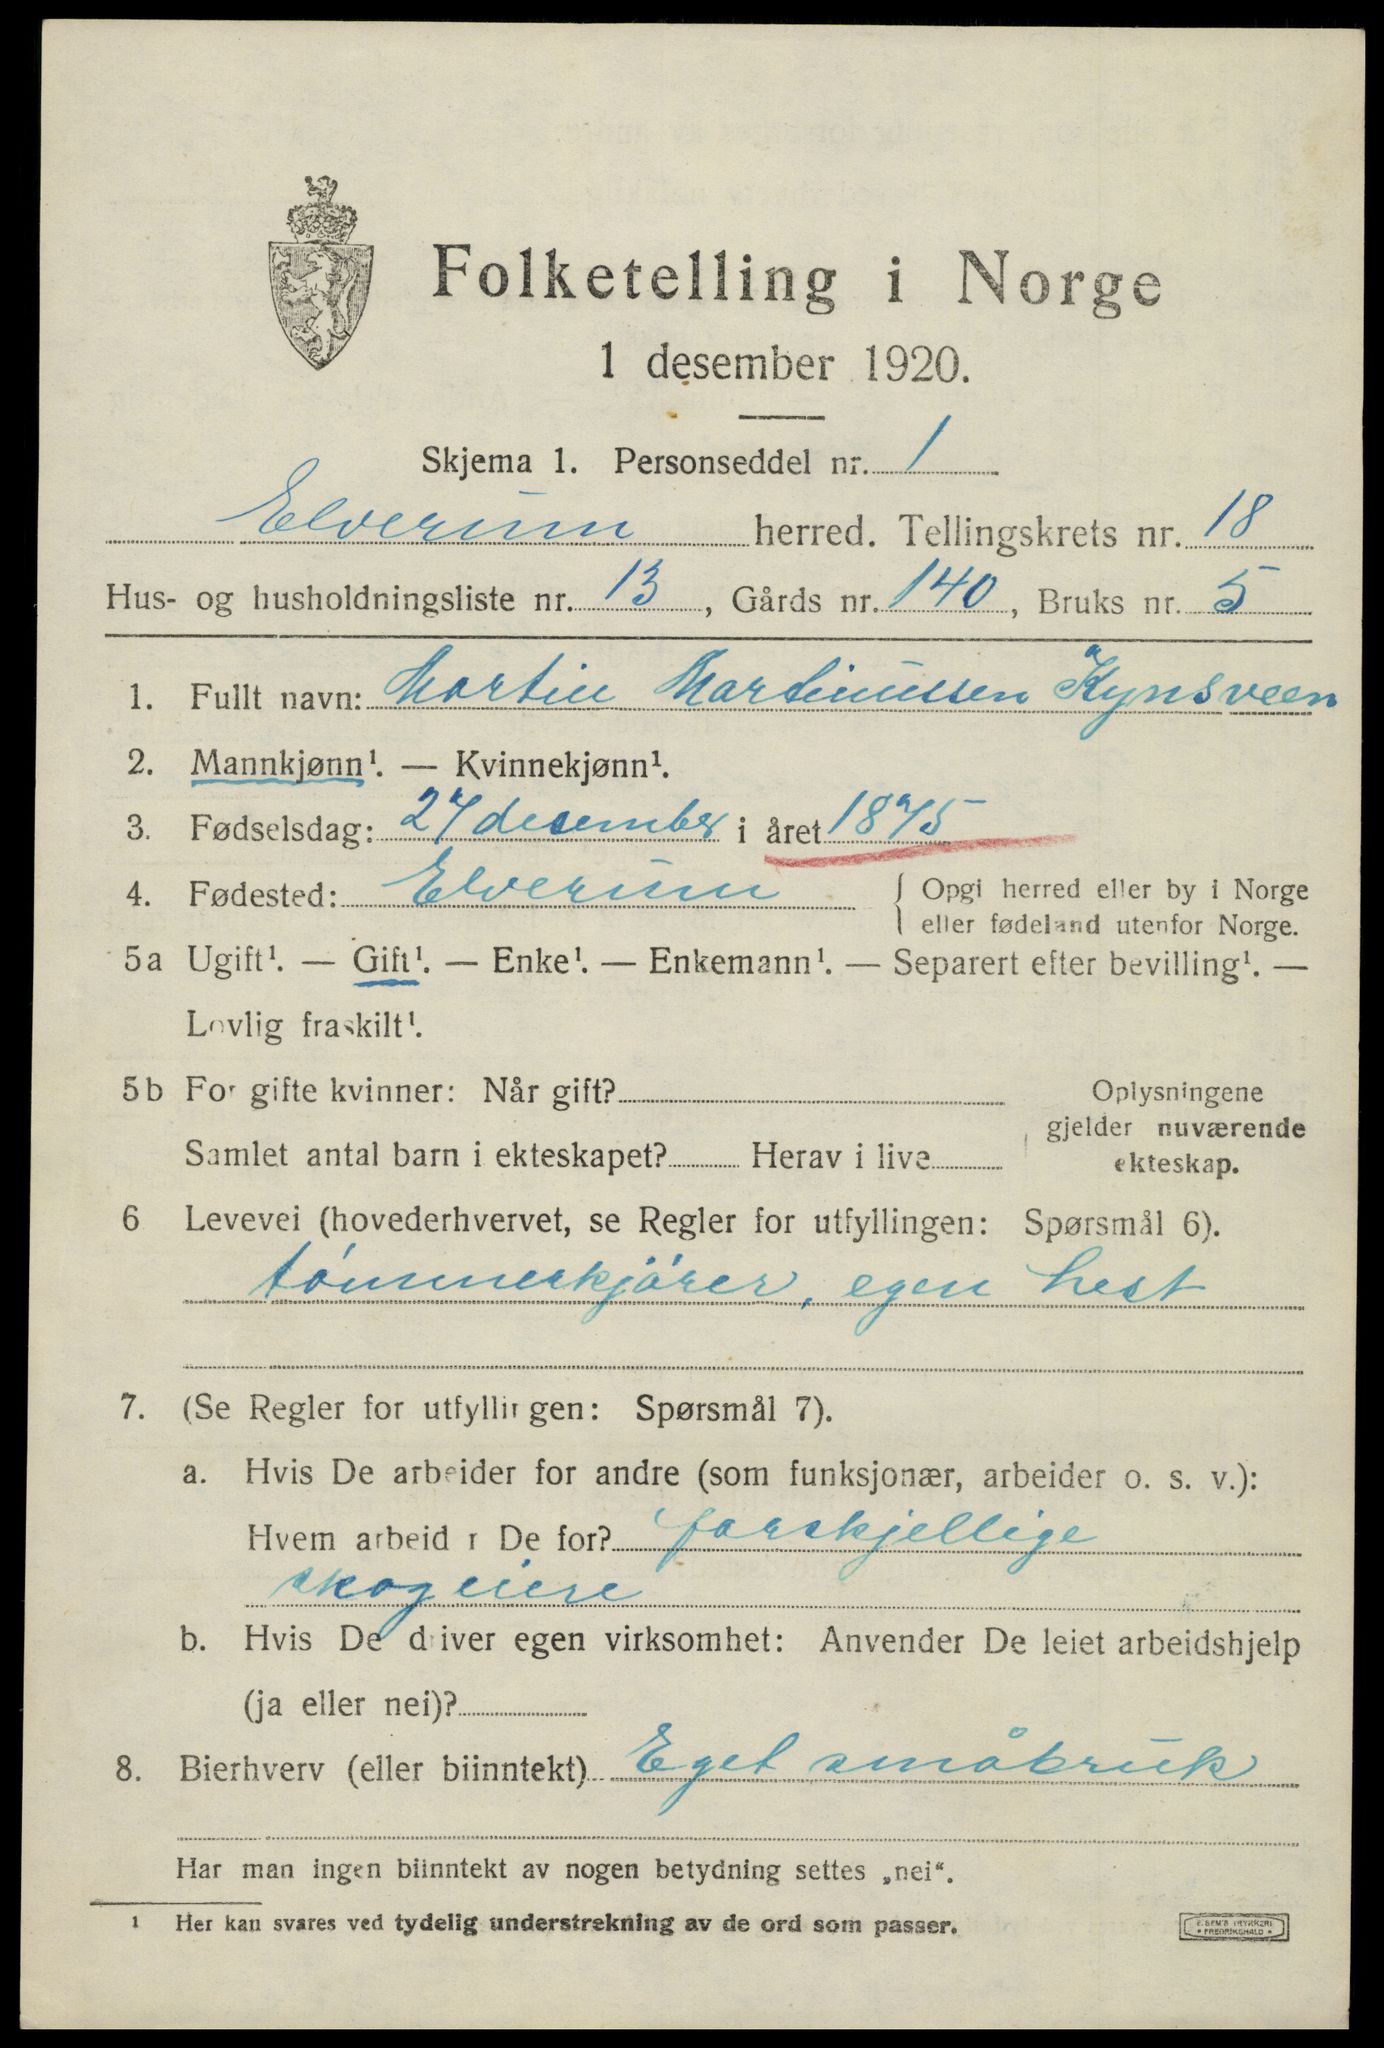 Folketelling i Norge
1 desember 1920.
Skjema 1. Personseddel nr. 1
Elverum herred. Tellingskrets nr. 18
Hus- og husholdningsliste nr. 13, Gårds nr. 140, Bruks nr. 5
1. Fullt navn: Martin Martinussen Kynsveen
2. Mannkjønn¹. — Kvinnekjønn¹.
3. Fødselsdag: 27 desember i året 1875
4. Fødested: Elverum { Opgi herred eller by i Norge
eller fødeland utenfor Norge.
5a Ugift¹. — Gift¹. — Enke¹. — Enkemann¹. — Separert efter bevilling¹. —
Lovlig fraskilt¹.
5b For gifte kvinner: Når gift? Oplysningene
gjelder nuværende
Samlet antal barn i ekteskapet? Herav i live
ekteskap.
6 Levevei (hovederhvervet, se Regler for utfyllingen: Spørsmål 6).
tómmerkjórer, egen hest
7. (Se Regler for utfyllingen: Spørsmål 7).
a. Hvis De arbeider for andre (som funksjonær, arbeider o. s. v.):
Hvem arbeid r De for? forskjellige
skogeiere
b. Hvis De driver egen virksomhet: Anvender De leiet arbeidshjelp
(ja eller nei)?
8. Bierhverv (eller biinntekt) Eget småbruk
Har man ingen biinntekt av nogen betydning settes „nei“.
¹ Her kan svares ved tydelig understrekning av de ord som passer.
FREDRIKSHALD